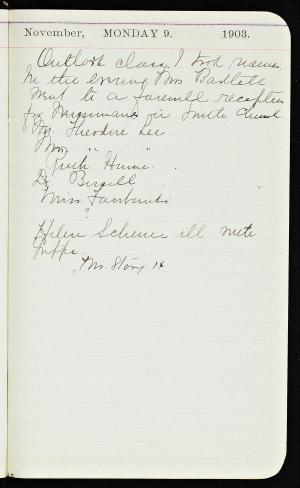 November, MONDAY 9. 1903.
Outlook class I took names
In the evening Mrs Bartlett
went to a farewell reception
for Missionaries in Church.
Mr. Theodore Lee
Mrs " "
Ruth Hume
Dr Bissell
Miss Fairbanks
?
Helen ill with
Mr. Story 14